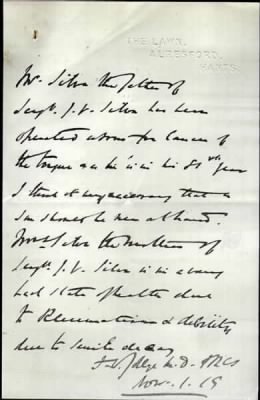 THE LAWN,
ALRESFORD,
HANTS.
Mr. Silva the father of
Sergt. J. V. Silva has been
operated upon for Cancer of
the tongue & as he is in his 81st year
I think it very necessary that a
Son should be near at hand.
Mrs Silva the mother of
Sergt. J. V. Silva is in a very
bad state of health due
to Rheumatism & debility
due to Senile decay
M.D. MRCS
Nov. 1. 19